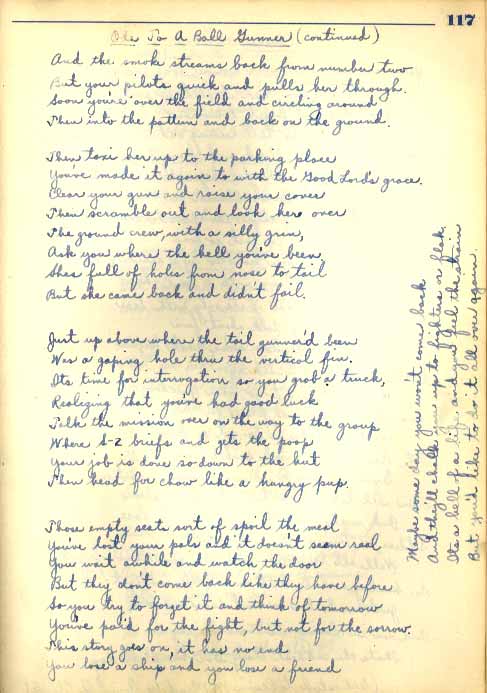 117
Ode To A Ball Gunner (continued)
And the smoke streams back from number two
But your pilots quick and pulls her through.
Soon you're over the field and circling around
Then into the pattern and back on the ground.
Then taxi her up to the parking place
You've made it again to with the Good Lord's grace.
Clear your gun and raise your cover
Then scramble out and look her over
The ground crew, with a silly grin,
Ask you where the hell you've been,
Shes full of holes from nose to tail
But she came back and didn't fail.
Just up above where the tail gunner'd been
Was a gaping hole thru the vertical fin.
Its time for interrogation so you grab a truck,
Realizing that you've had good luck
Talk the mission over on the way to the group
Where S-2 briefs and gets the poop
Your job is done so down to the hut
Then head for chow like a hungry pup.
Those empty seats sort of spoil the meal
You've lost your pals and it doesn't seem real
You wait awhile and watch the door
But they dont come back like they have before
So you try to forget it and think of tomorrow
You've paid for the fight, but not for the sorrow.
This story goes on, it has no end
You lose a ship and you lose a friend
Maybe some day you won't come back
And they'll chalk you up to fighters or flak,
Its a hell of a life and you feel the strain
But you'd like to do it all over again.